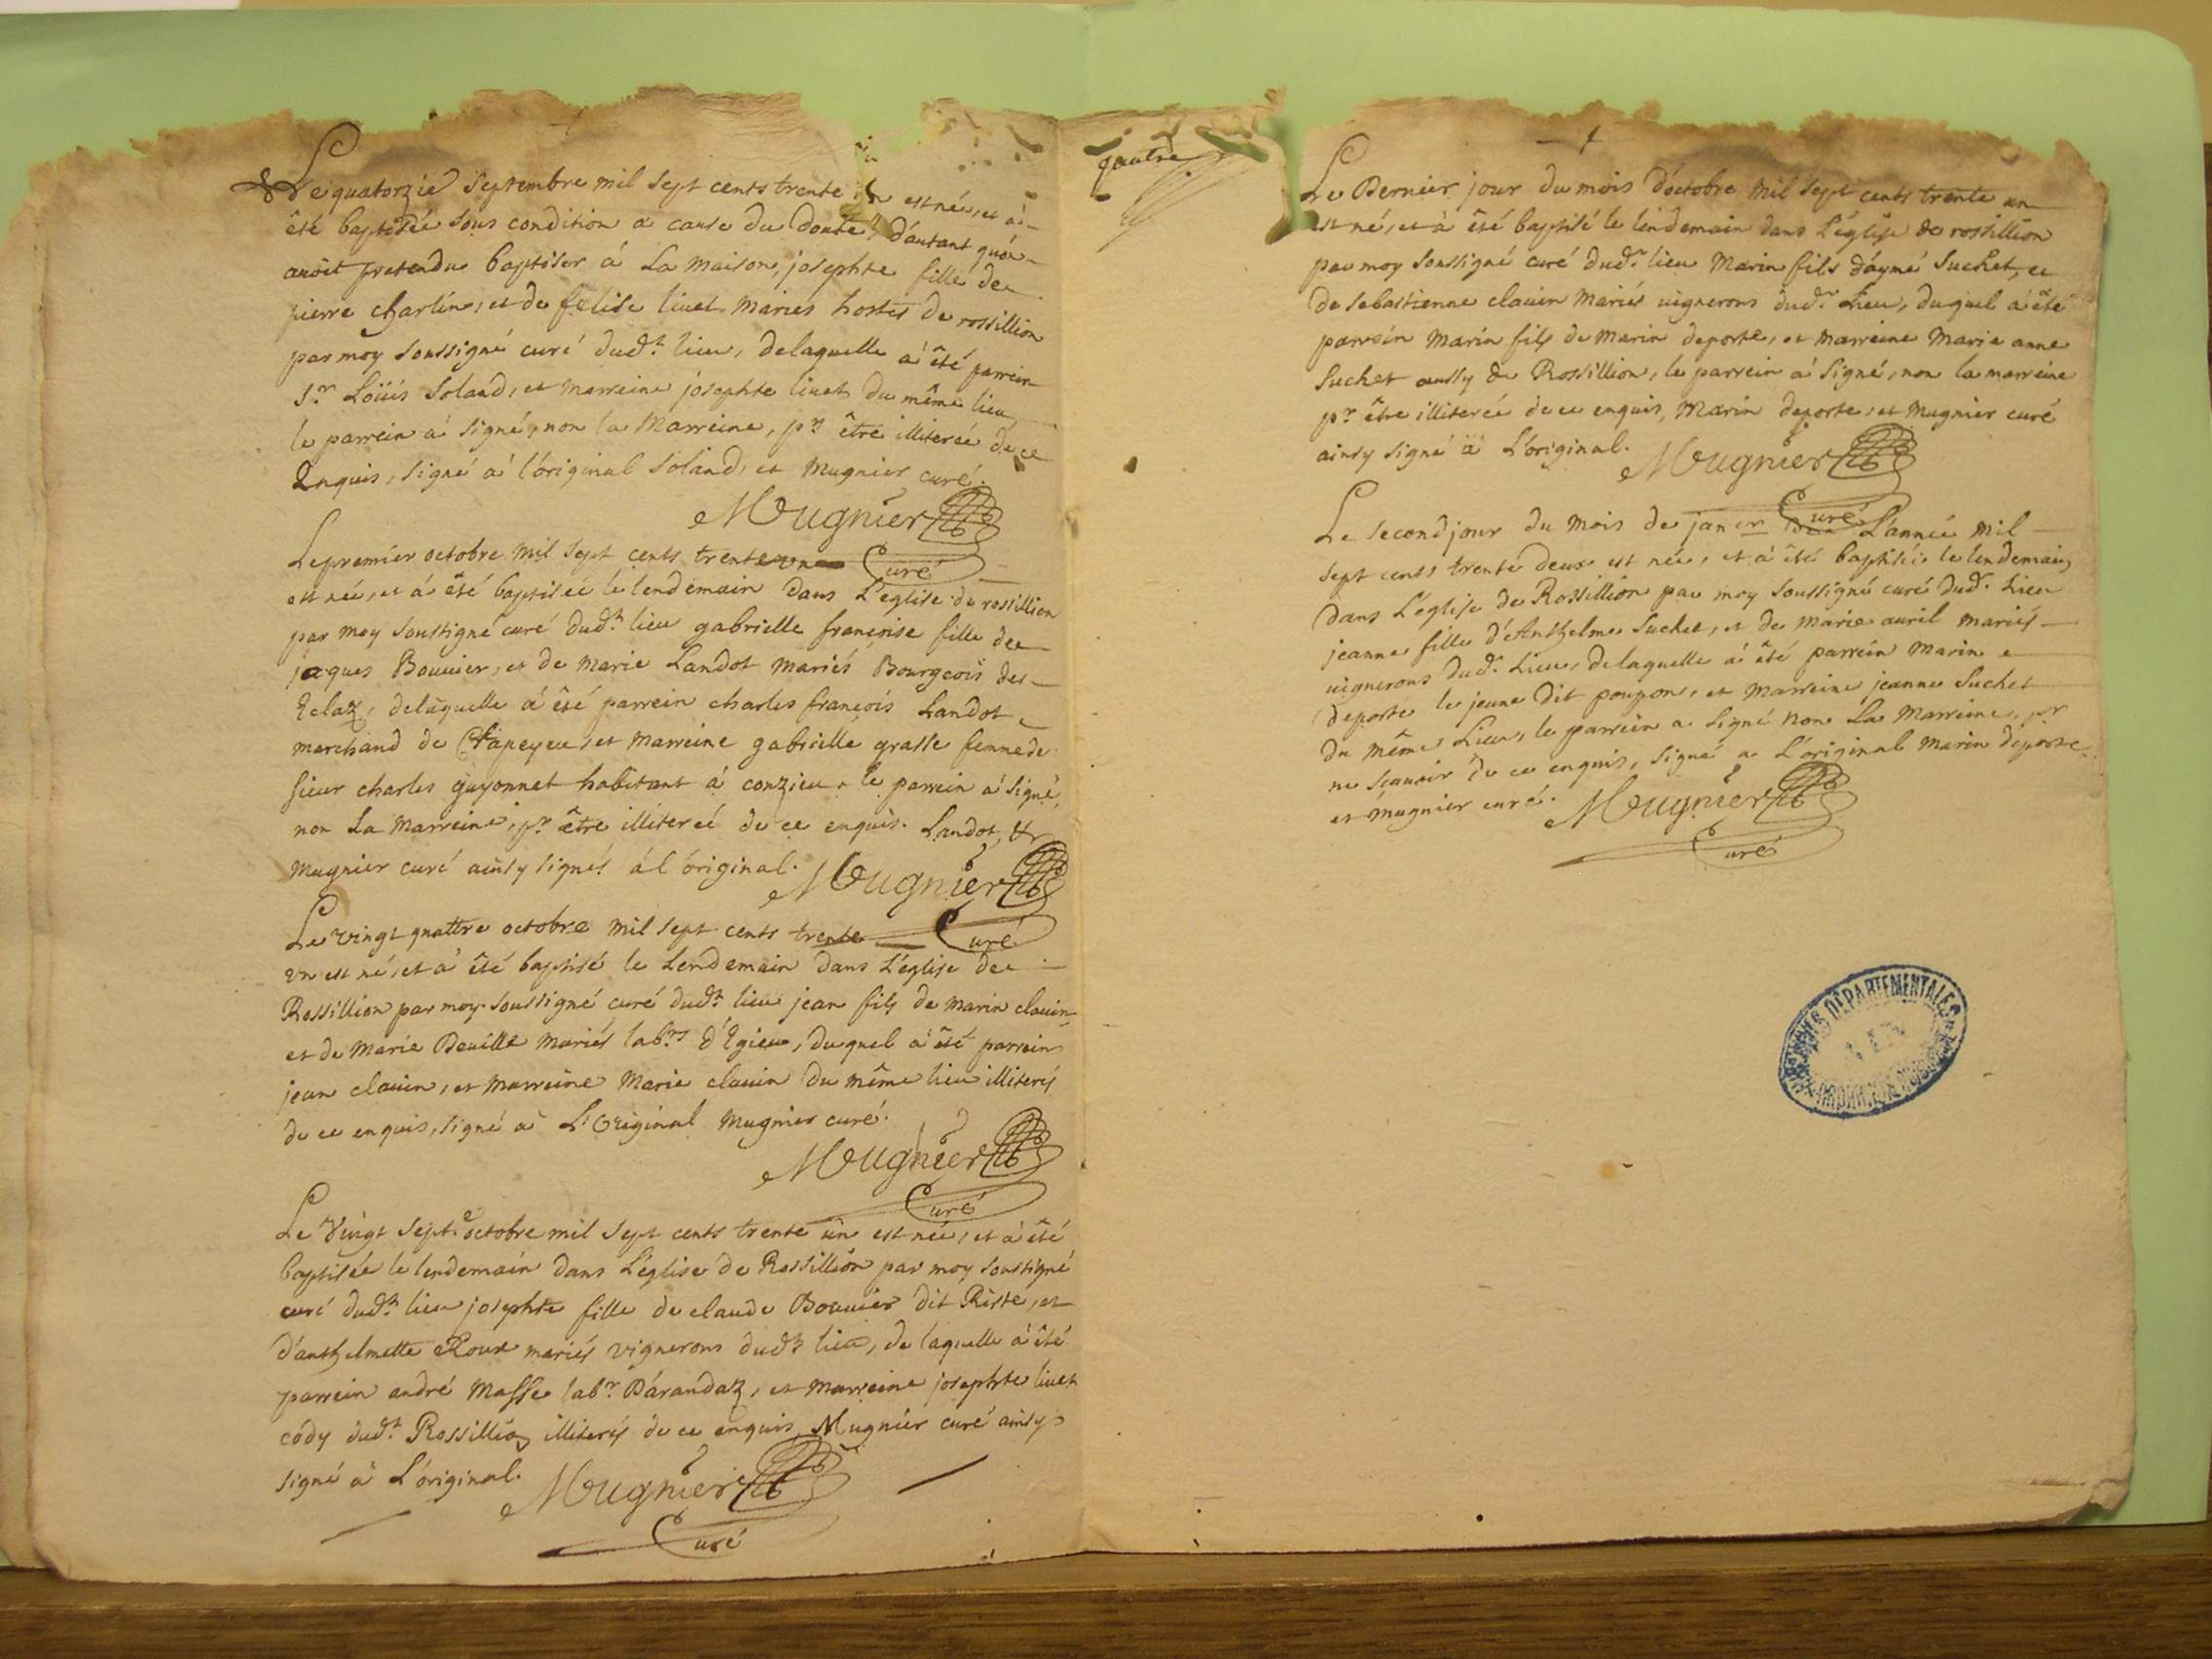 Le quatorzie septembre mil sept cents trente un est née, et a
été baptisée sous condition a cause du doute, d'autant qu'on
avoit pretendu baptiser á La maison, josephte fille de
pierre charlin, et de felise livet mariés hostes de rossillion
par moy soussigné curé dud.t lieu, delaquelle á été parrein
s.r Loüis Soland, et marreine josephte livet du même lieu
le parrein á signé, non la Marreine, p.r être illiterée de ce
Enquis, signé á l'original Soland, et mugnier curé.
Mugnier
Curé
Le premier octobre mil sept cents trente un
est née, et á été baptisée le lendemain dans L'église de rossillion
par moy soussigné curé dud.t lieu gabrielle françoise fille de
jaques Bouvier, et de marie Landot mariés Bourgeois des
Eclaz, delaquelle á été parrein charles françois Landot
marchand de Chapeyeu, et marreine gabrielle grasse femme de
sieur charles guyonnet habitant á conzieu, le parrein á signé,
non La marreine, p.r être illiterée de ce enquis. Landot, &
mugnier curé ainsy signés á l'original.
Mugnier
Curé
Le vingt quattre octobre mil sept cents trente
un est né, et á été baptisé le Lendemain dans L'église de
Rossillion par moy soussigné curé dud.t lieu jean fils de marin clavin
et de marie Deville mariés lab.rs d'Egieu, duquel á été parrein
jean clavin, et marreine marie clavin du même lieu illiterés
de ce enquis, signé á L'original mugnier curé.
Mugnier
Curé
Le vingt sept.e octobre mil sept cents trente un est née, et á été
baptisée le lendemain dans L'église de Rossillion par moy soussigné
curé dud.t lieu josephte fille de claude Bouvier dit Riste, et
d'anthelmette Roux mariés vignerons dud.t lieu, de laquelle á été
parrein andré Masse lab.r Dárandaz, et marreine josephte livet
cody dud.t Rossillion illiterés de ce enquis, Mugnier curé ainsy
signé á L'original.
Mugnier
Curé
Le Dernier jour du mois d'octobre mil sept cents trente un
est né, et á été baptisé le lendemain dans L'église de rossillion
par moy soussigné curé dud.t lieu Marin fils d'aymé Suchet, et
de sebastienne clavin mariés vignerons dud.t Lieu, duquel á été
parrein Marin fils de Marin deporte, et marreine Marie anne
Suchet aussy de Rossillion, le parrein á signé, non la marreine
p.r être illiterée de ce enquis, Marin deporte, et mugnier curé
ainsy signé á L'original.
Mugnier
Curé
Le second jour du mois de janer de L'année mil
sept cents trente deux est née, et á été baptisée le lendemain
dans L'église de Rossillion par moy soussigné curé dud.t Lieu
jeanne fille d'Anthelme Suchet, et de marie avril mariés
vignerons dud.t Lieu, delaquelle á été parrein Marin
deporte le jeune dit poupon, et marreine jeanne Suchet
du même Lieu, le parrein a signé non La Marreine, p.r
ne sçavoir de ce enquis, signé a L'original marin deporte
et mugnier curé.
Mugnier
Curé
ARCHIVES DÉPARTEMENTALES